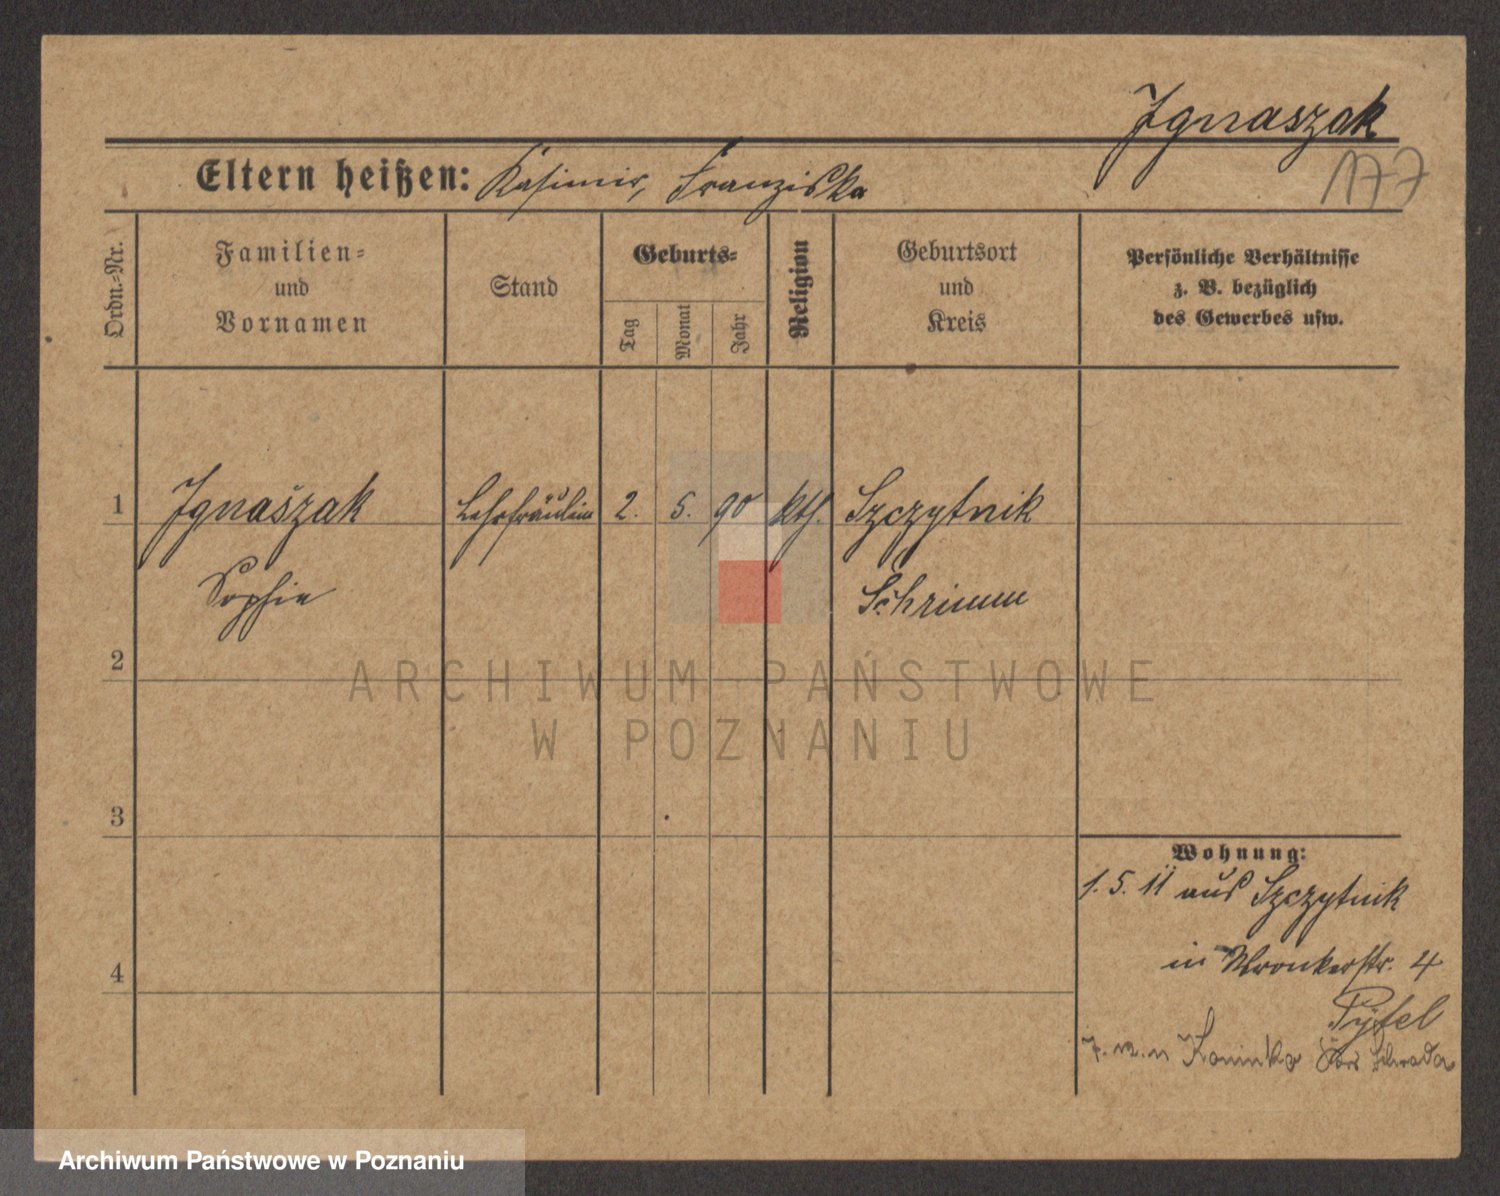 Ignaszak
177
Eltern heißen: Kasimir, Franziska
Ordn.-Nr.
Familien-
und
Vornamen
Stand
Geburts-
Tag
Monat
Jahr
Religion
Geburtsort
und
Kreis
Persönliche Verhältnisse
z. B. bezüglich
des Gewerbes usw.
1 Ignaszak Lehrfräulein 2. 5. 90 kth. Szczytnik
Sophie Schrimm
2
ARCHIWUM PAŃSTWOWE
W POZNANIU
3
Wohnung:
1. 5. 11 aus Szczytnik
in Wronkerstr. 4
4
Pyfel
Archiwum Państwowe w Poznaniu